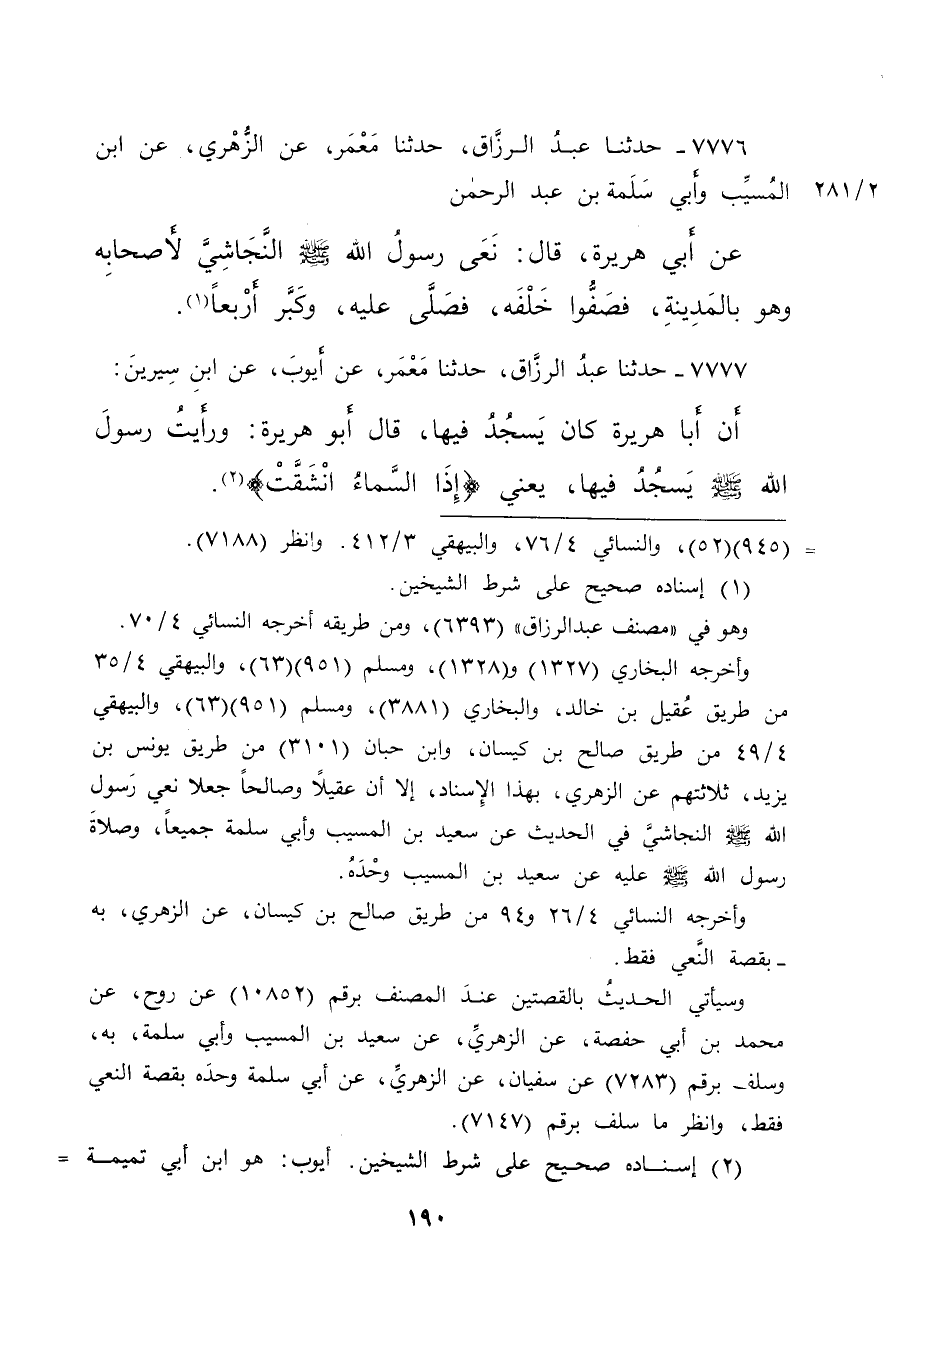 ٧٧٧٦ ـ حدثنـا عبـدُ الـرزَّاق، حدثنا مَعْمَر، عن الزُّهْري، عن ابن
٢٨١/٢ المُسيِّب وأَبي سَلَمة بن عبد الرحمٰن
عن أَبي هريرة، قال: نَعَى رسولُ الله ﷺ النَّجَاشِيَّ لأَصحابِه
وهو بالمَدِينةِ، فصَفُّوا خَلْفَه، فصَلَّى عليه، وكَبَّر أَرْبعاً(١).
٧٧٧٧ ـ حدثنا عبدُ الرزَّاق، حدثنا مَعْمَر، عن أَيوبَ، عن ابنِ سِيرينَ:
أَن أَبا هريرة كان يَسجُدُ فيها، قال أَبو هريرة: ورأَيتُ رسولَ
الله ﷺ يَسجُدُ فيها، يعني ﴿إِذَا السَّماءُ انْشَقَّتْ﴾(٢).
= (٩٤٥)(٥٢)، والنسائي ٧٦/٤، والبيهقي ٤١٢/٣. وانظر (٧١٨٨).
(١) إسناده صحيح على شرط الشيخين.
وهو في «مصنف عبدالرزاق» (٦٣٩٣)، ومن طريقه أخرجه النسائي ٧٠/٤.
وأخرجه البخاري (١٣٢٧) و(١٣٢٨)، ومسلم (٩٥١)(٦٣)، والبيهقي ٣٥/٤
من طريق عُقيل بن خالد، والبخاري (٣٨٨١)، ومسلم (٩٥١)(٦٣)، والبيهقي
٤٩/٤ من طريق صالح بن كيسان، وابن حبان (٣١٠١) من طريق يونس بن
يزيد، ثلاثتهم عن الزهري، بهذا الإسناد، إلا أن عقيلاً وصالحاً جعلا نعي رَسول
الله ﷺ النجاشيَّ في الحديث عن سعيد بن المسيب وأبي سلمة جميعاً، وصلاةَ
رسول الله ﷺ عليه عن سعيد بن المسيب وحْدَهُ.
وأخرجه النسائي ٢٦/٤ و٩٤ من طريق صالح بن كيسان، عن الزهري، به
ـ بقصة النَّعي فقط.
وسيأتي الحـديثُ بالقصتين عندَ المصنف برقم (١٠٨٥٢) عن روح، عن
محمد بن أبي حفصة، عن الزهريِّ، عن سعيد بن المسيب وأبي سلمة، به،
وسلف برقم (٧٢٨٣) عن سفيان، عن الزهريِّ، عن أبي سلمة وحدَه بقصة النعي
فقط، وانظر ما سلف برقم (٧١٤٧).
(٢) إسنـاده صحيح على شرط الشيخين. أيوب: هو ابن أبي تميمـة =
١٩٠